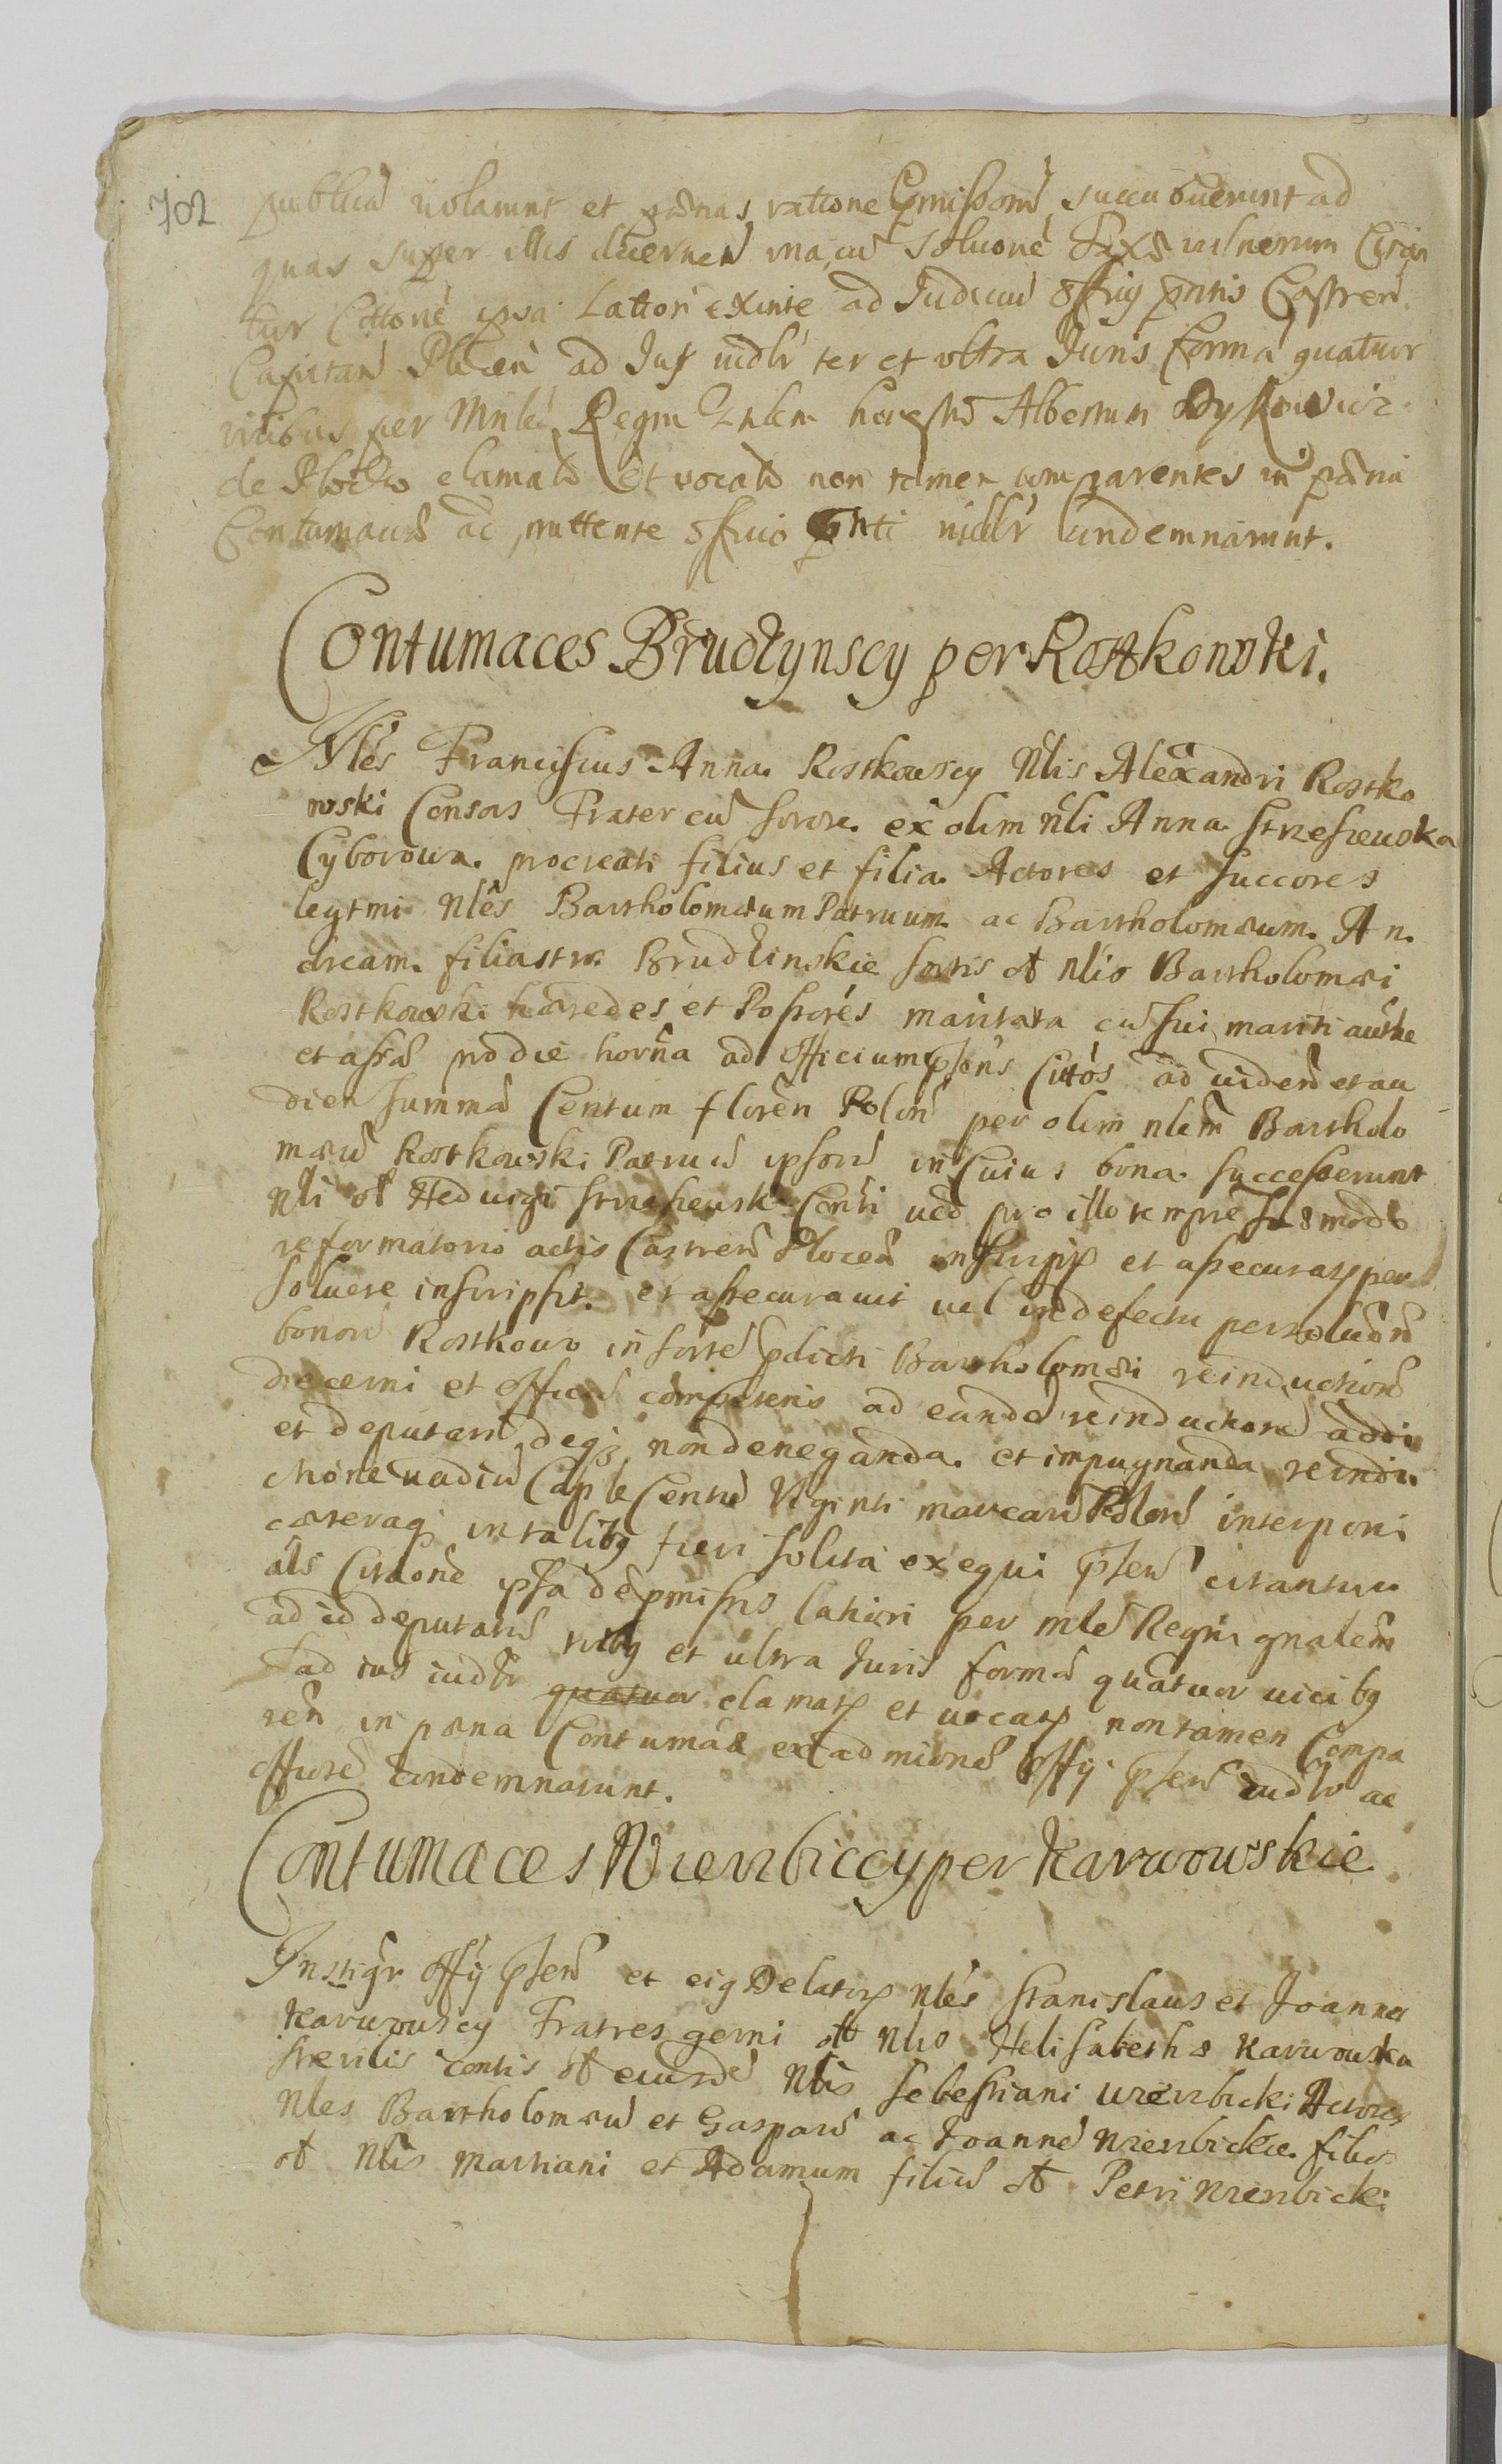 702
publicū violarunt et pœnas ratione Cōmissorū succubuerunt ad
quas super illis decernen̄ una cū solutione vulnerum Citan
tur Cittone ipsa Lattori exinte ad Judiciū Officy p̄ntis Castren̄
Capitan̄ Plocen̄ ad Jus iudlr ter et ultra Juris formā quatuor
vicibus per Minlē Regni honestū Albertum
de Płocko clamatos et vocatos non tamen comparentes in pœna
Contumacię ac mittente officio p̄nti iudlr condemnarunt.
Contumaces Brudzynscy per Rostkowski.
Nles Franciscus Anna Rostkowscy Nlis Alexandri Rostko
wski Consors Frater cū sorore ex olim nli Anna Strzeszewska
Cyborowa procreati filius et filia Actores et succores
legtmi Nles Bartholomæum Patruum ac Bartholomæum An
dream filiastros Brudzinskie sortis ol Nlis Bartholomæi
Rostkowski hæredes et Possores maritata cū sui mariti authe
et assā pro die horna ad Officium p̄sens Cittos ad viden̄ et au
dien̄ summā Centum floren̄ Polon̄ per olim nlem Bartholo
mæū Rostkowski Patruū ipsorū in Cuius bona successerunt
Nli ol Hedvigi Strzeszewsk Conti
reformatorio actis Castren̄ Plocen̄ inscrip et assecurat per
soluere inscripsit et assecurauit vel in defectu persoluēn̄
bonorū Rostkowo in sorte p̄dicti Bartholomæi reinductionē
decerni et officiū competens ad eandē reinductionē addi
et deputari deq nondeneganda et impugnanda reindu
ctione vadiū Caple Centū Viginti marcarū Polon̄ interponi
cæteraq in talibq fieri solita exequi p̄sen̄ citantur
āls Citaone ipsa de p̄missis latiori per mlē Regni gnalem
ad id deputatū tribq et ultra Juris formā quatuor vicibq
ad ius iudlr quatuor clamat et vocat non tamen Compa
ren̄ in pœna Contumaciæ ex admione offy p̄sen̄ iudlr ac
officiose condemnarunt.
Contumaces Wierzbiccy per Karwowskie
Instigr offy p̄sen̄ et eiq Delator Nles Stanislaus et Joannes
Karwowscy Fratres germi ol Nlis Helisabethæ Karwowska
sterilis contis ol eiusdē Nlis Sebestiani Wierzbicki Actores
Nles Bartholomæū et Gasparū ac Joannē Wierzbickie filios
ol Nlis Martiani et Adamum filiū ol Petri Wierzbicki